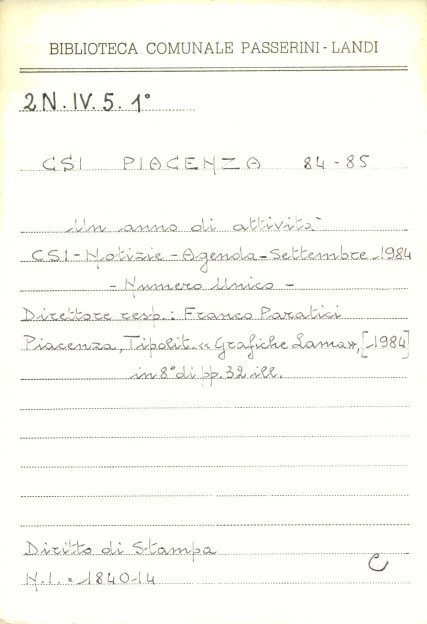 BIBLIOTECA COMUNALE PASSERINI-LANDI
2N.IV.5.1°
CSI PIACENZA 84-85
Un anno di attività
CSI-Notizie-Agenda-Settembre 1984
- Numero Unico -
Direttore resp.: Franco Paratici
Piacenza, Tipolit. «Grafiche Lama», [1984]
in 8° di pp. 32 ill.
Diritto di Stampa
C
N.I. = 184014